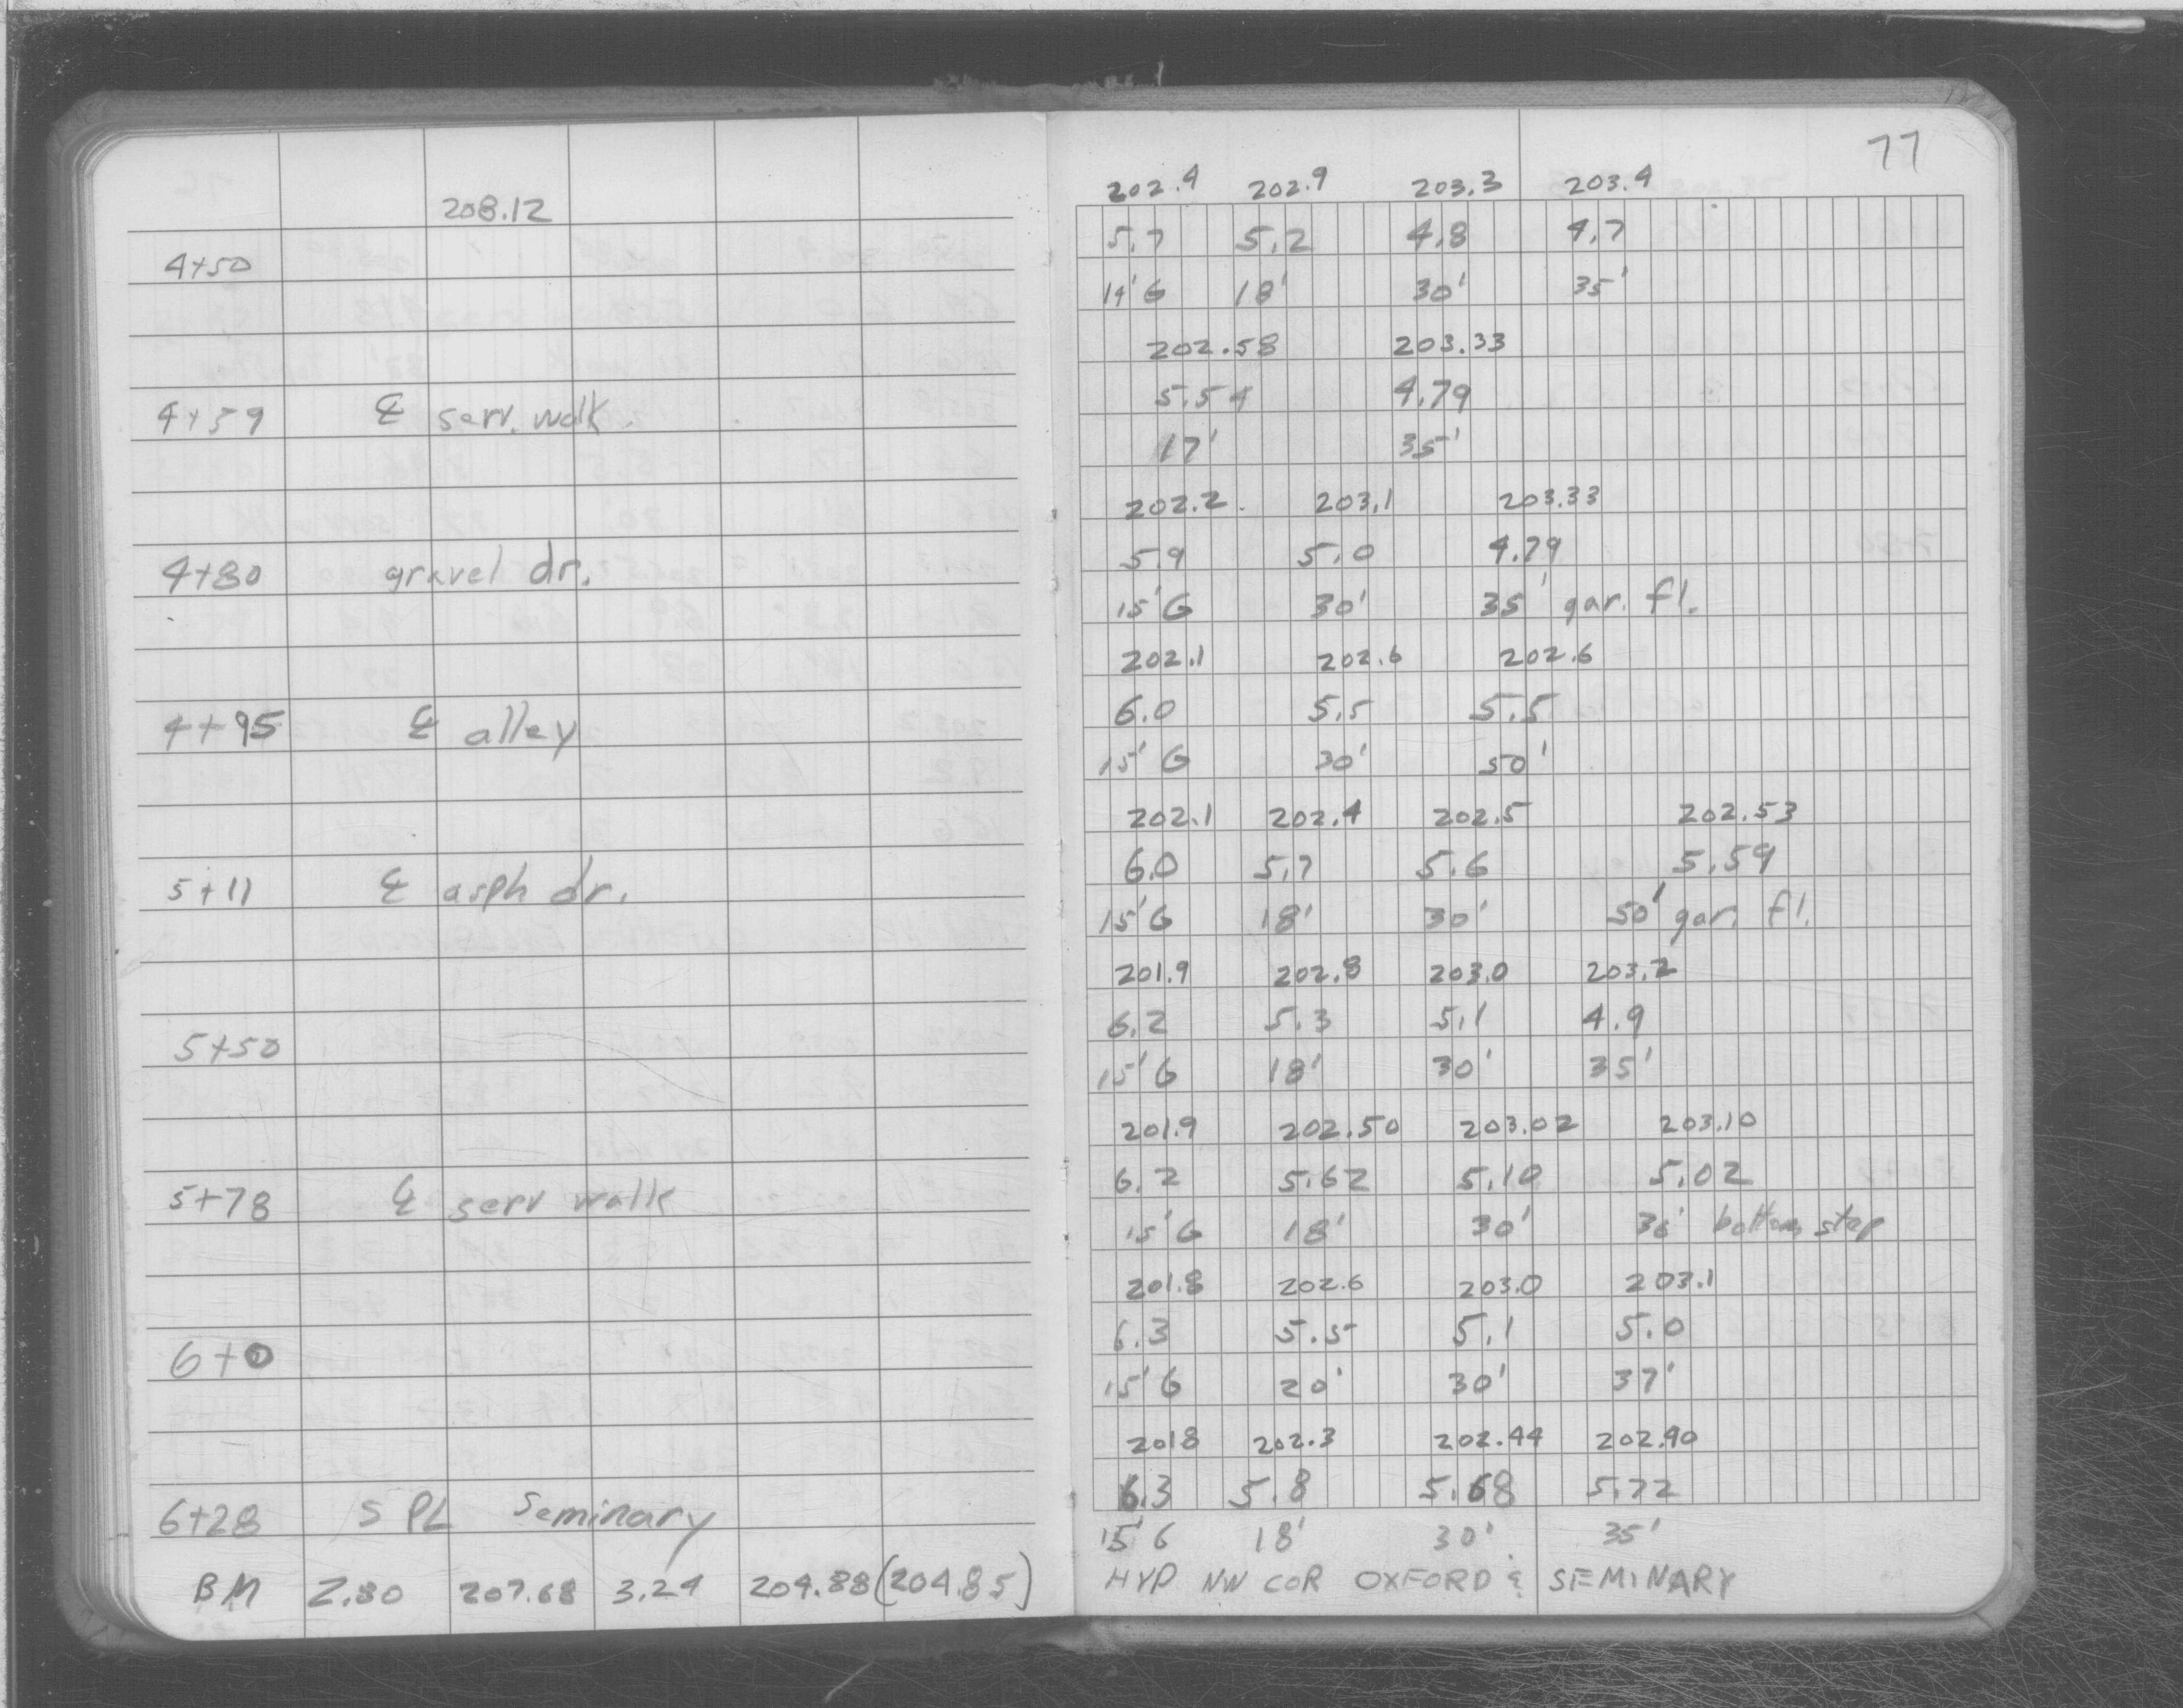 77
208.12
202.4 202.9 203.3 203.4
5.7 5.2 4.8 4.7
4+50
14' G 18' 30' 35'
202.58 203.33
4+59 ℄ serv. walk.
5.54 4.79
17' 35'
202.2. 203.1 203.33
5.9 5.0 4.79
4+80 gravel dr.
15' G 30' 35' gar. fl.
202.1 202.6 202.6
4+95 ℄ alley
6.0 5.5 5.5
15' G 30' 50'
202.1 202.4 202.5 202.53
6.0 5.7 5.6 5.59
5+11 ℄ asph dr.
15' G 18' 30' 50' gar. fl.
201.9 202.8 203.0 203.2
6.2 5.3 5.1 4.9
5+50
15' G 18' 30' 35'
201.9 202.50 203.02 203.10
6.2 5.62 5.10 5.02
5+78 ℄ serv walk
15' G 18' 30' 36' bottom step
201.8 202.6 203.0 203.1
6.3 5.5 5.1 5.0
6+0
15' G 20' 30' 37'
2018 202.3 202.44 202.40
6.3 5.8 5.68 5.72
6+28 S PL Seminary
15' G 18' 30' 35'
BM 2.80 207.68 3.24 204.88 (204.85) HYD NW COR OXFORD & SEMINARY